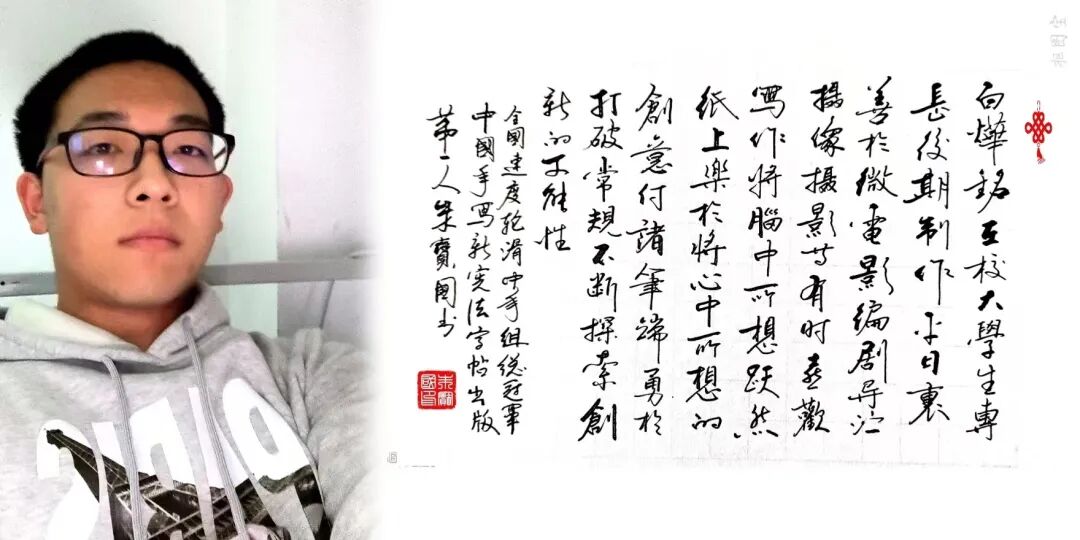 白燁銘在校大學生專
長後期制作平日裏
善於微電影編劇导演
攝像摄影等有时喜歡
写作將腦中所想跃然
纸上樂於將心中所想的
創意付諸筆端勇於
打破常規不断探索創
新的可能性
全國速度轮滑中年组總冠軍
中國手写新宪法字帖出版
第一人朱寶國书
朱寶國印